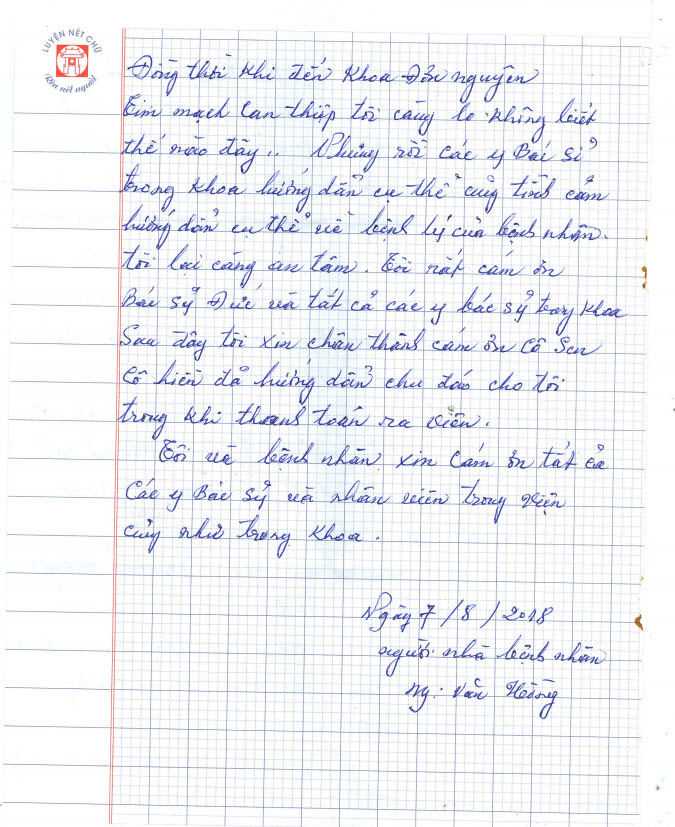 LUYỆN NÉT CHỮ
Rèn nết người
Đồng thời khi đến Khoa Đơn nguyên
Tim mạch can thiệp tôi càng lo không biết
thế nào đây.. Nhưng rồi các y Bác sĩ
trong Khoa hướng dẫn cụ thể cũng tình cảm
hướng dẫn cụ thể về bệnh lý của bệnh nhân.
tôi lại càng an tâm. Tôi rất cám ơn
Bác sỹ Đức và tất cả các y bác sỹ trong Khoa
Sau đây tôi xin chân thành cám ơn Cô Sen
Cô hiền đã hướng dẫn chu đáo cho tôi
trong khi thanh toán ra viện.
Tôi và bệnh nhân xin cám ơn tất cả
Các y Bác sỹ và nhân viên trong viện
cũng như trong Khoa.
Ngày 7/8/2018
người nhà bệnh nhân
Ng. Văn Hồng